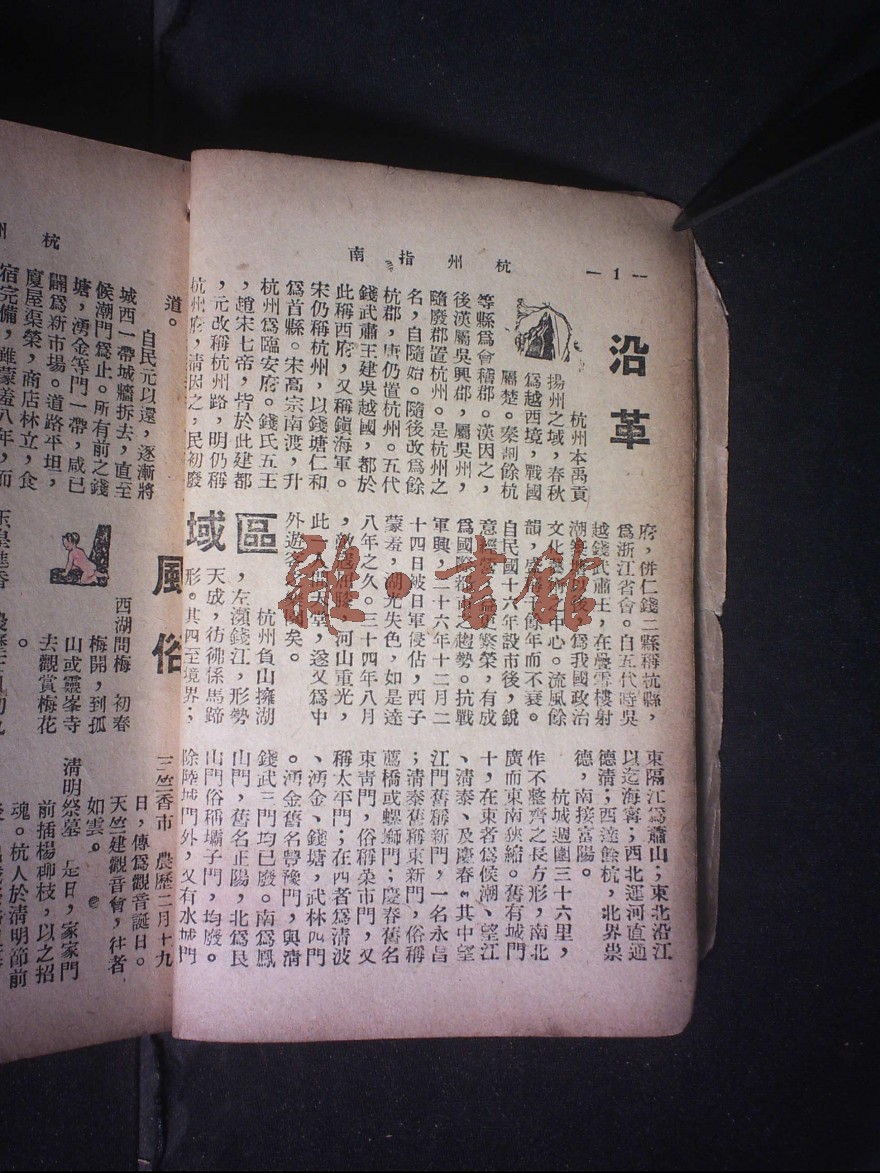 —1—
杭州指南
沿革
杭州本禹貢
揚州之域，春秋
爲越西境，戰國
屬楚。秦剏餘杭
等縣爲會稽郡。漢因之，
後漢屬吳興郡，屬吳州，
隨廢郡置杭州。是杭州之
名，自隨始。隨後改爲餘
杭郡，唐仍置杭州。五代
錢武肅王建吳越國，都於
此稱西府，又稱鎭海軍。
宋仍稱杭州，以錢塘仁和
爲首縣。宋高宗南渡，升
杭州爲臨安府。錢氏五王
，趙宋七帝，皆於此建都
，元改稱杭州路，明仍稱
杭州府，清因之，民初廢
府，併仁錢二縣稱杭縣，
爲浙江省會。自五代時吳
越錢武肅王，在疊雪樓射
潮築塘以後，爲我國政治
文化 中心。流風餘
韻，盛 千餘年而不衰。
自民國十六年設市後，銳
意經營， 更繁榮，有成
爲國際都市之趨勢。抗戰
軍興，二十六年十二月二
十四日被日軍侵佔，西子
蒙羞，湖光失色，如是達
八年之久。三十四年八月
， 河山重光，
此 天堂，遂又爲中
外遊客 矣。
區域
杭州負山擁湖
，左瀕錢江，形勢
天成，彷彿係馬蹄
形。其四至境界；
東隔江爲蕭山；東北沿江
以迄海寧；西北運河直通
德清；西達餘杭，北界崇
德，南接富陽。
杭城週圍三十六里，
作不整齊之長方形，南北
廣而東南狹縮。舊有城門
十，在東者爲候潮、望江
、清泰、及慶春。其中望
江門舊稱新門，一名永昌
；清泰舊稱東新門，俗稱
薦橋或螺螄門；慶春舊名
東靑門，俗稱菜市門，又
稱太平門；在西者爲清波
、湧金、錢塘，武林四門
。湧金舊名豐豫門，與清
錢武三門均已廢。南爲鳳
山門，舊名正陽，北爲艮
山門俗稱壩子門，均廢。
除陸城門外，又有水城門
杭州
道。
自民元以還，逐漸將
城西一帶城牆拆去，直至
候潮門爲止。所有前之錢
塘，湧金等門一帶，咸已
闢爲新市場。道路平坦，
廈屋渠榮，商店林立，食
宿完備，雖蒙羞八年，而
風俗
西湖問梅　初春
梅開，到孤
山或靈峯寺
去觀賞梅花
。
三竺香市　農歷二月十九
日，傳爲觀音誕日。
天竺建觀音會，往者
如雲。
清明祭墓　是日，家家門
前插楊柳枝，以之招
魂。杭人於清明節前
雅·書館